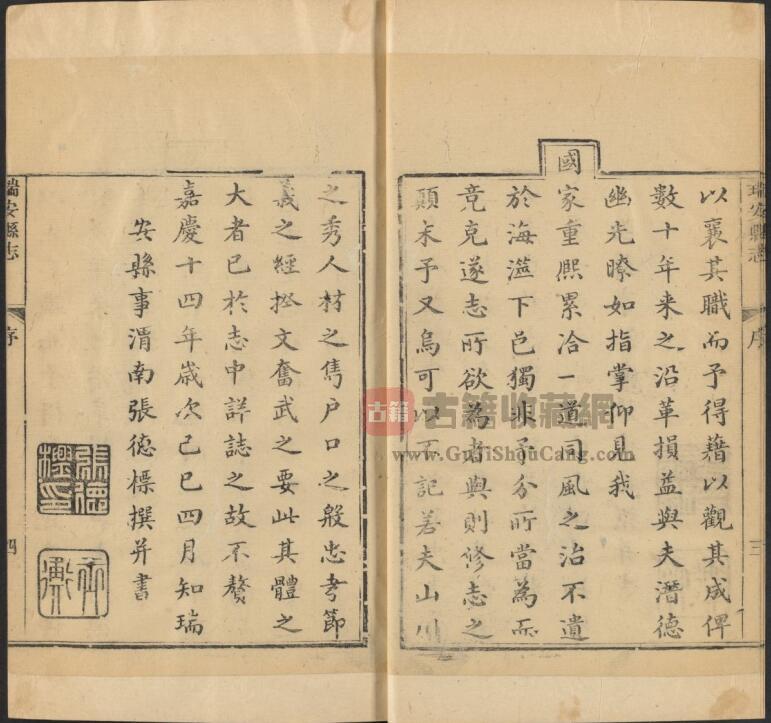 瑞安縣志
序
三
以襄其職而予得藉以觀其成俾
數十年來之沿革損益與夫潛德
幽光瞭如指掌仰見我
國家重熙累洽一道同風之治不遺
於海澨下邑獨非予分所當為而
竟克遂志所欲為者與則修志之
顛末予又烏可以不記若夫山川
之秀人材之雋户口之殷忠孝節
義之經揆文奮武之要此其體之
大者已於志中詳誌之故不贅
嘉慶十四年歲次己巳四月知瑞
安縣事渭南張德標撰并書
張德標印
瑞安縣志
序
四
古籍
古籍收藏網
www.GujiShouCang.com